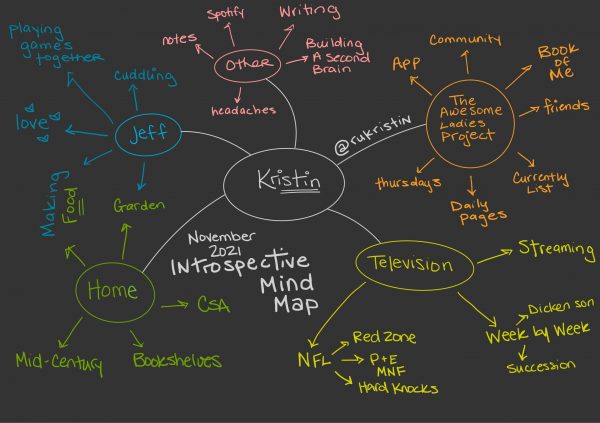 Playing
games
together
Cuddling
love
Jeff
Making
Food
Garden
Spotify
Writing
notes
Other
Building
A Second
Brain
headaches
Community
App
Book
of
Me
The
Awesome
Ladies
Project
friends
Thursdays
Daily
pages
Currently
List
@rukristin
Kristin
November
2021
Introspective
Mind
Map
Home
CSA
Mid-Century
Bookshelves
Television
Streaming
Week by Week
Dickenson
Succession
NFL
Red Zone
P+E
MNF
Hard Knocks